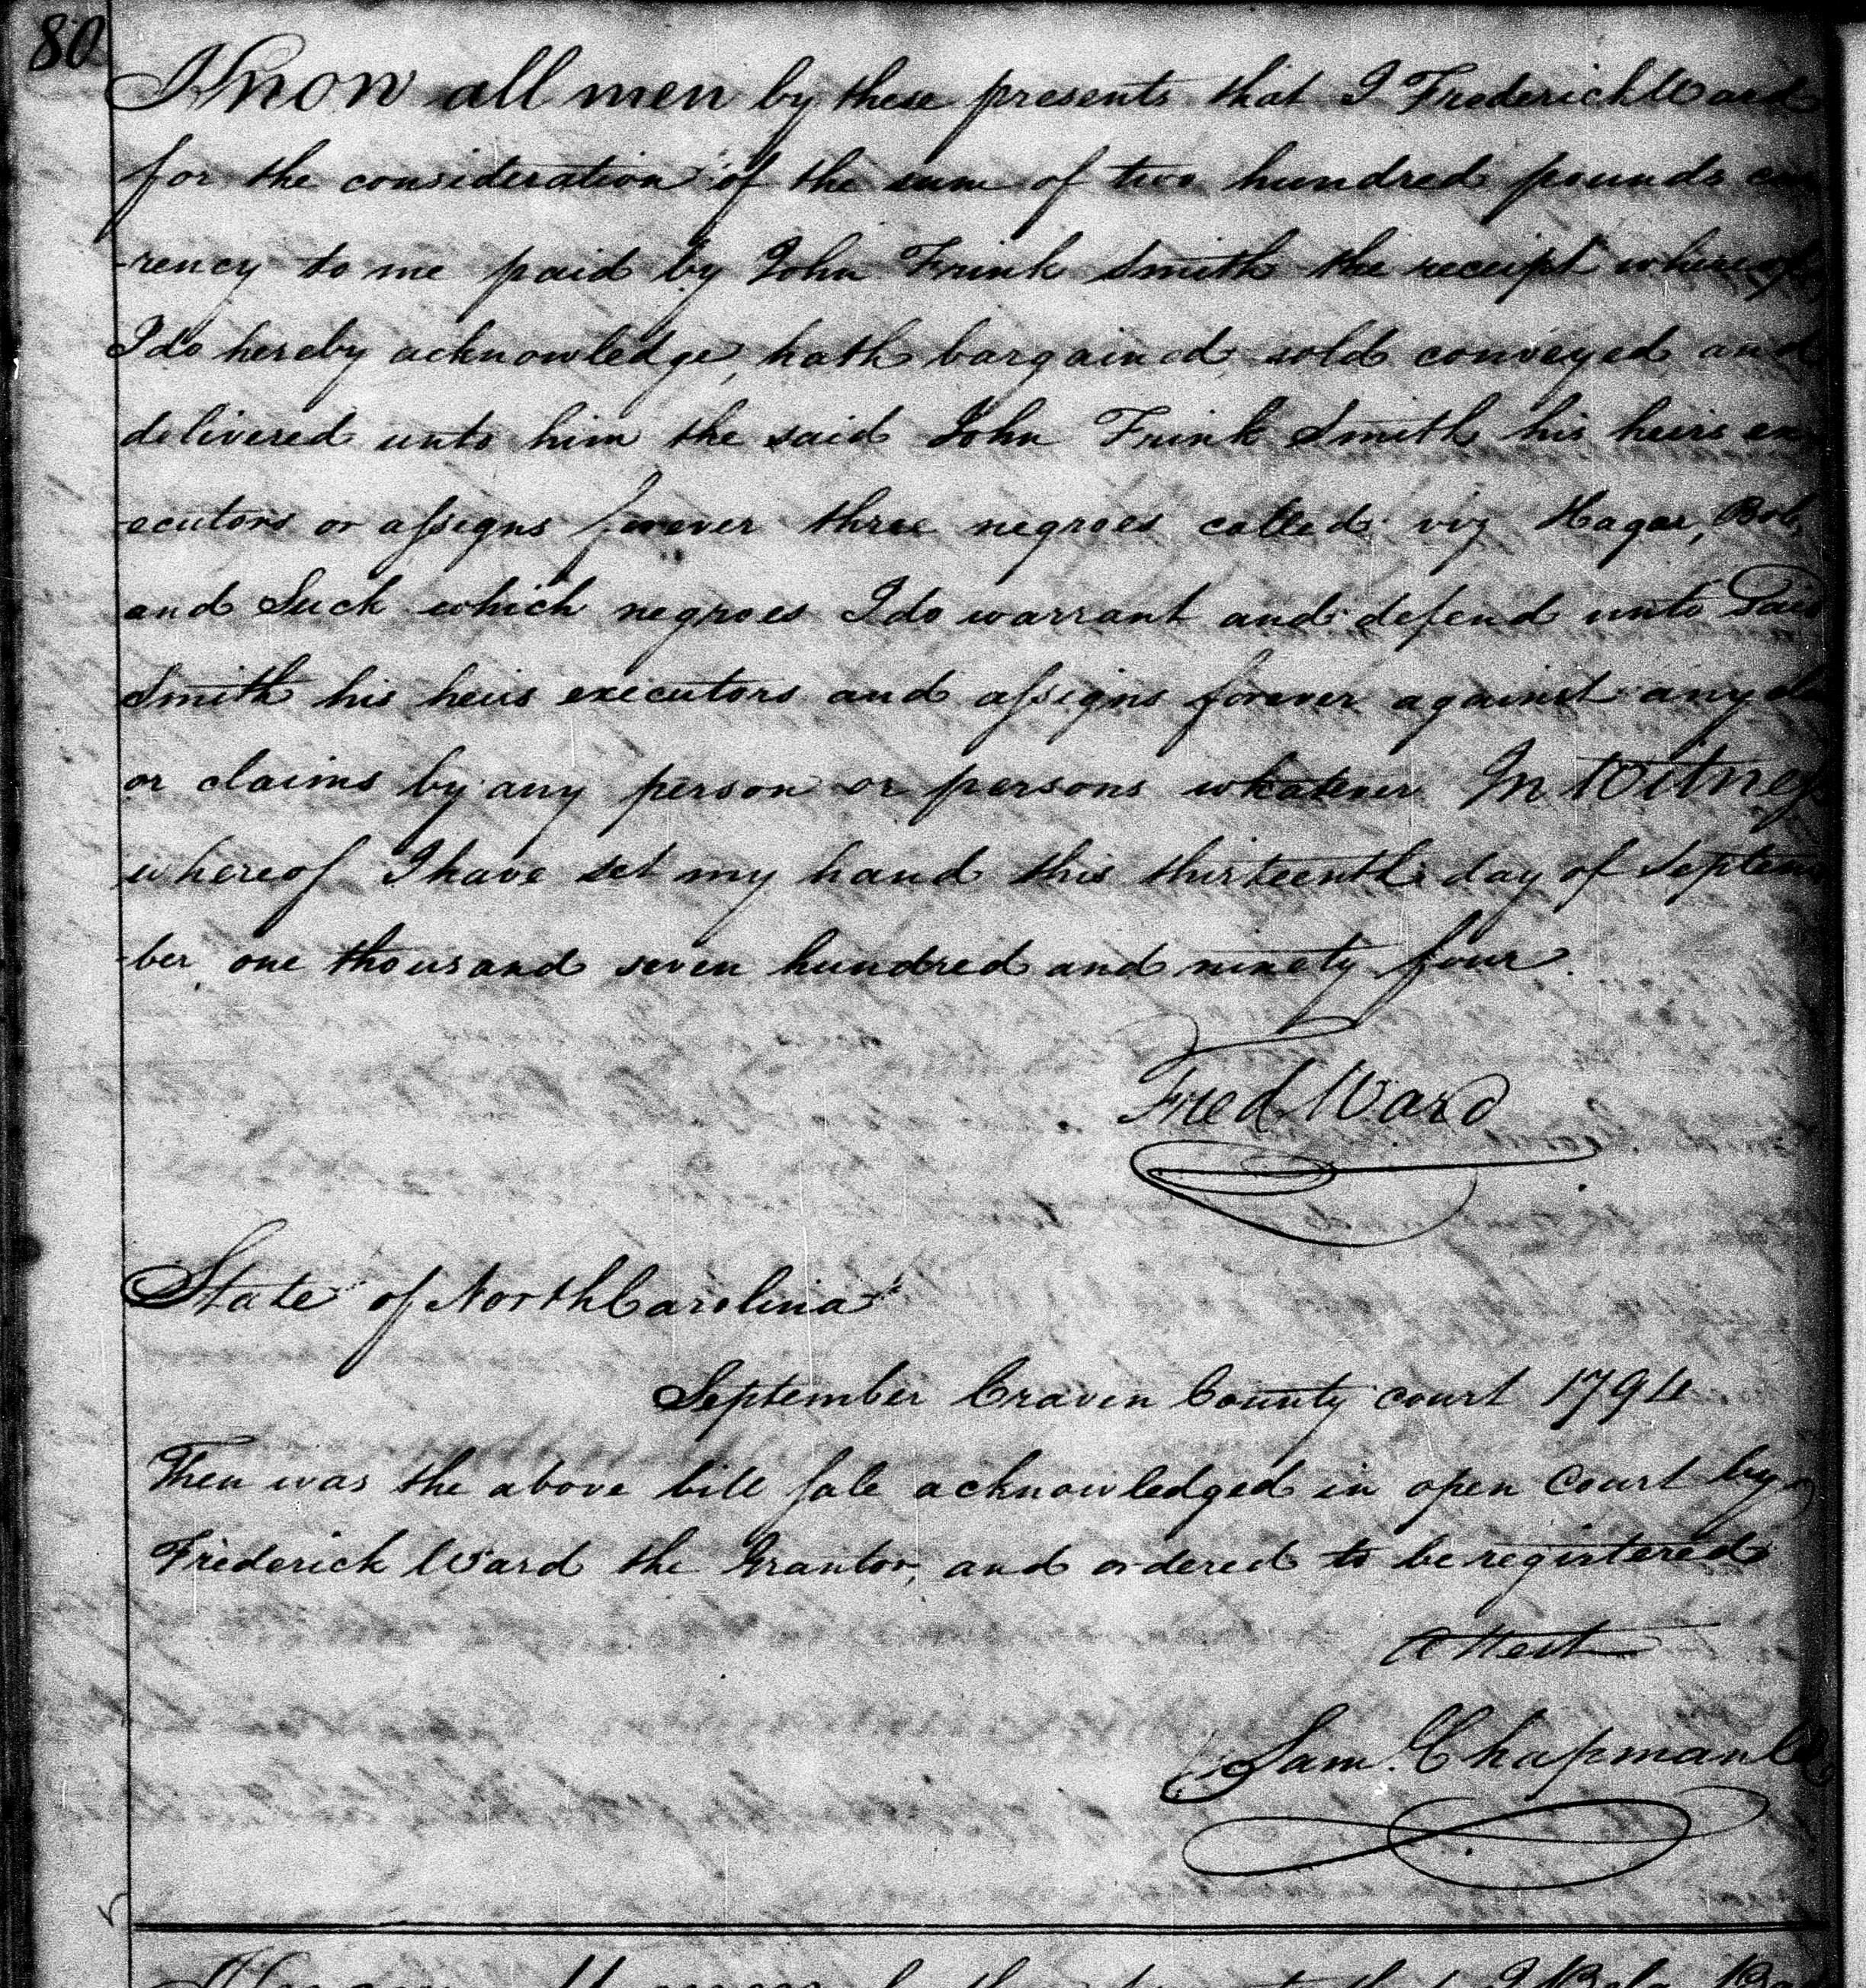 80
Know all men by these presents that I Frederick Ward
for the consideration of the sum of two hundred pounds cur
-rency to me paid by John Frink Smith the receipt whereof
I do hereby acknowledge, hath bargained, sold conveyed and
delivered unto him the said John Frink Smith his heirs ex
-ecutors or assigns forever three negroes called viz Hagar, Bob,
and Suck which negroes I do warrant and defend unto said
Smith his heirs executors and assigns forever against any
or claims by any person or persons whatever In Witness
whereof I have set my hand this thirteenth day of Septem
-ber one thousand seven hundred and ninety four.
Fred Ward
State of North Carolina
September Craven County court 1794
Then was the above bill sale acknowledged in open Court by
Frederick Ward the Grantor, and ordered to be registered
Attest
Sam. Chapman